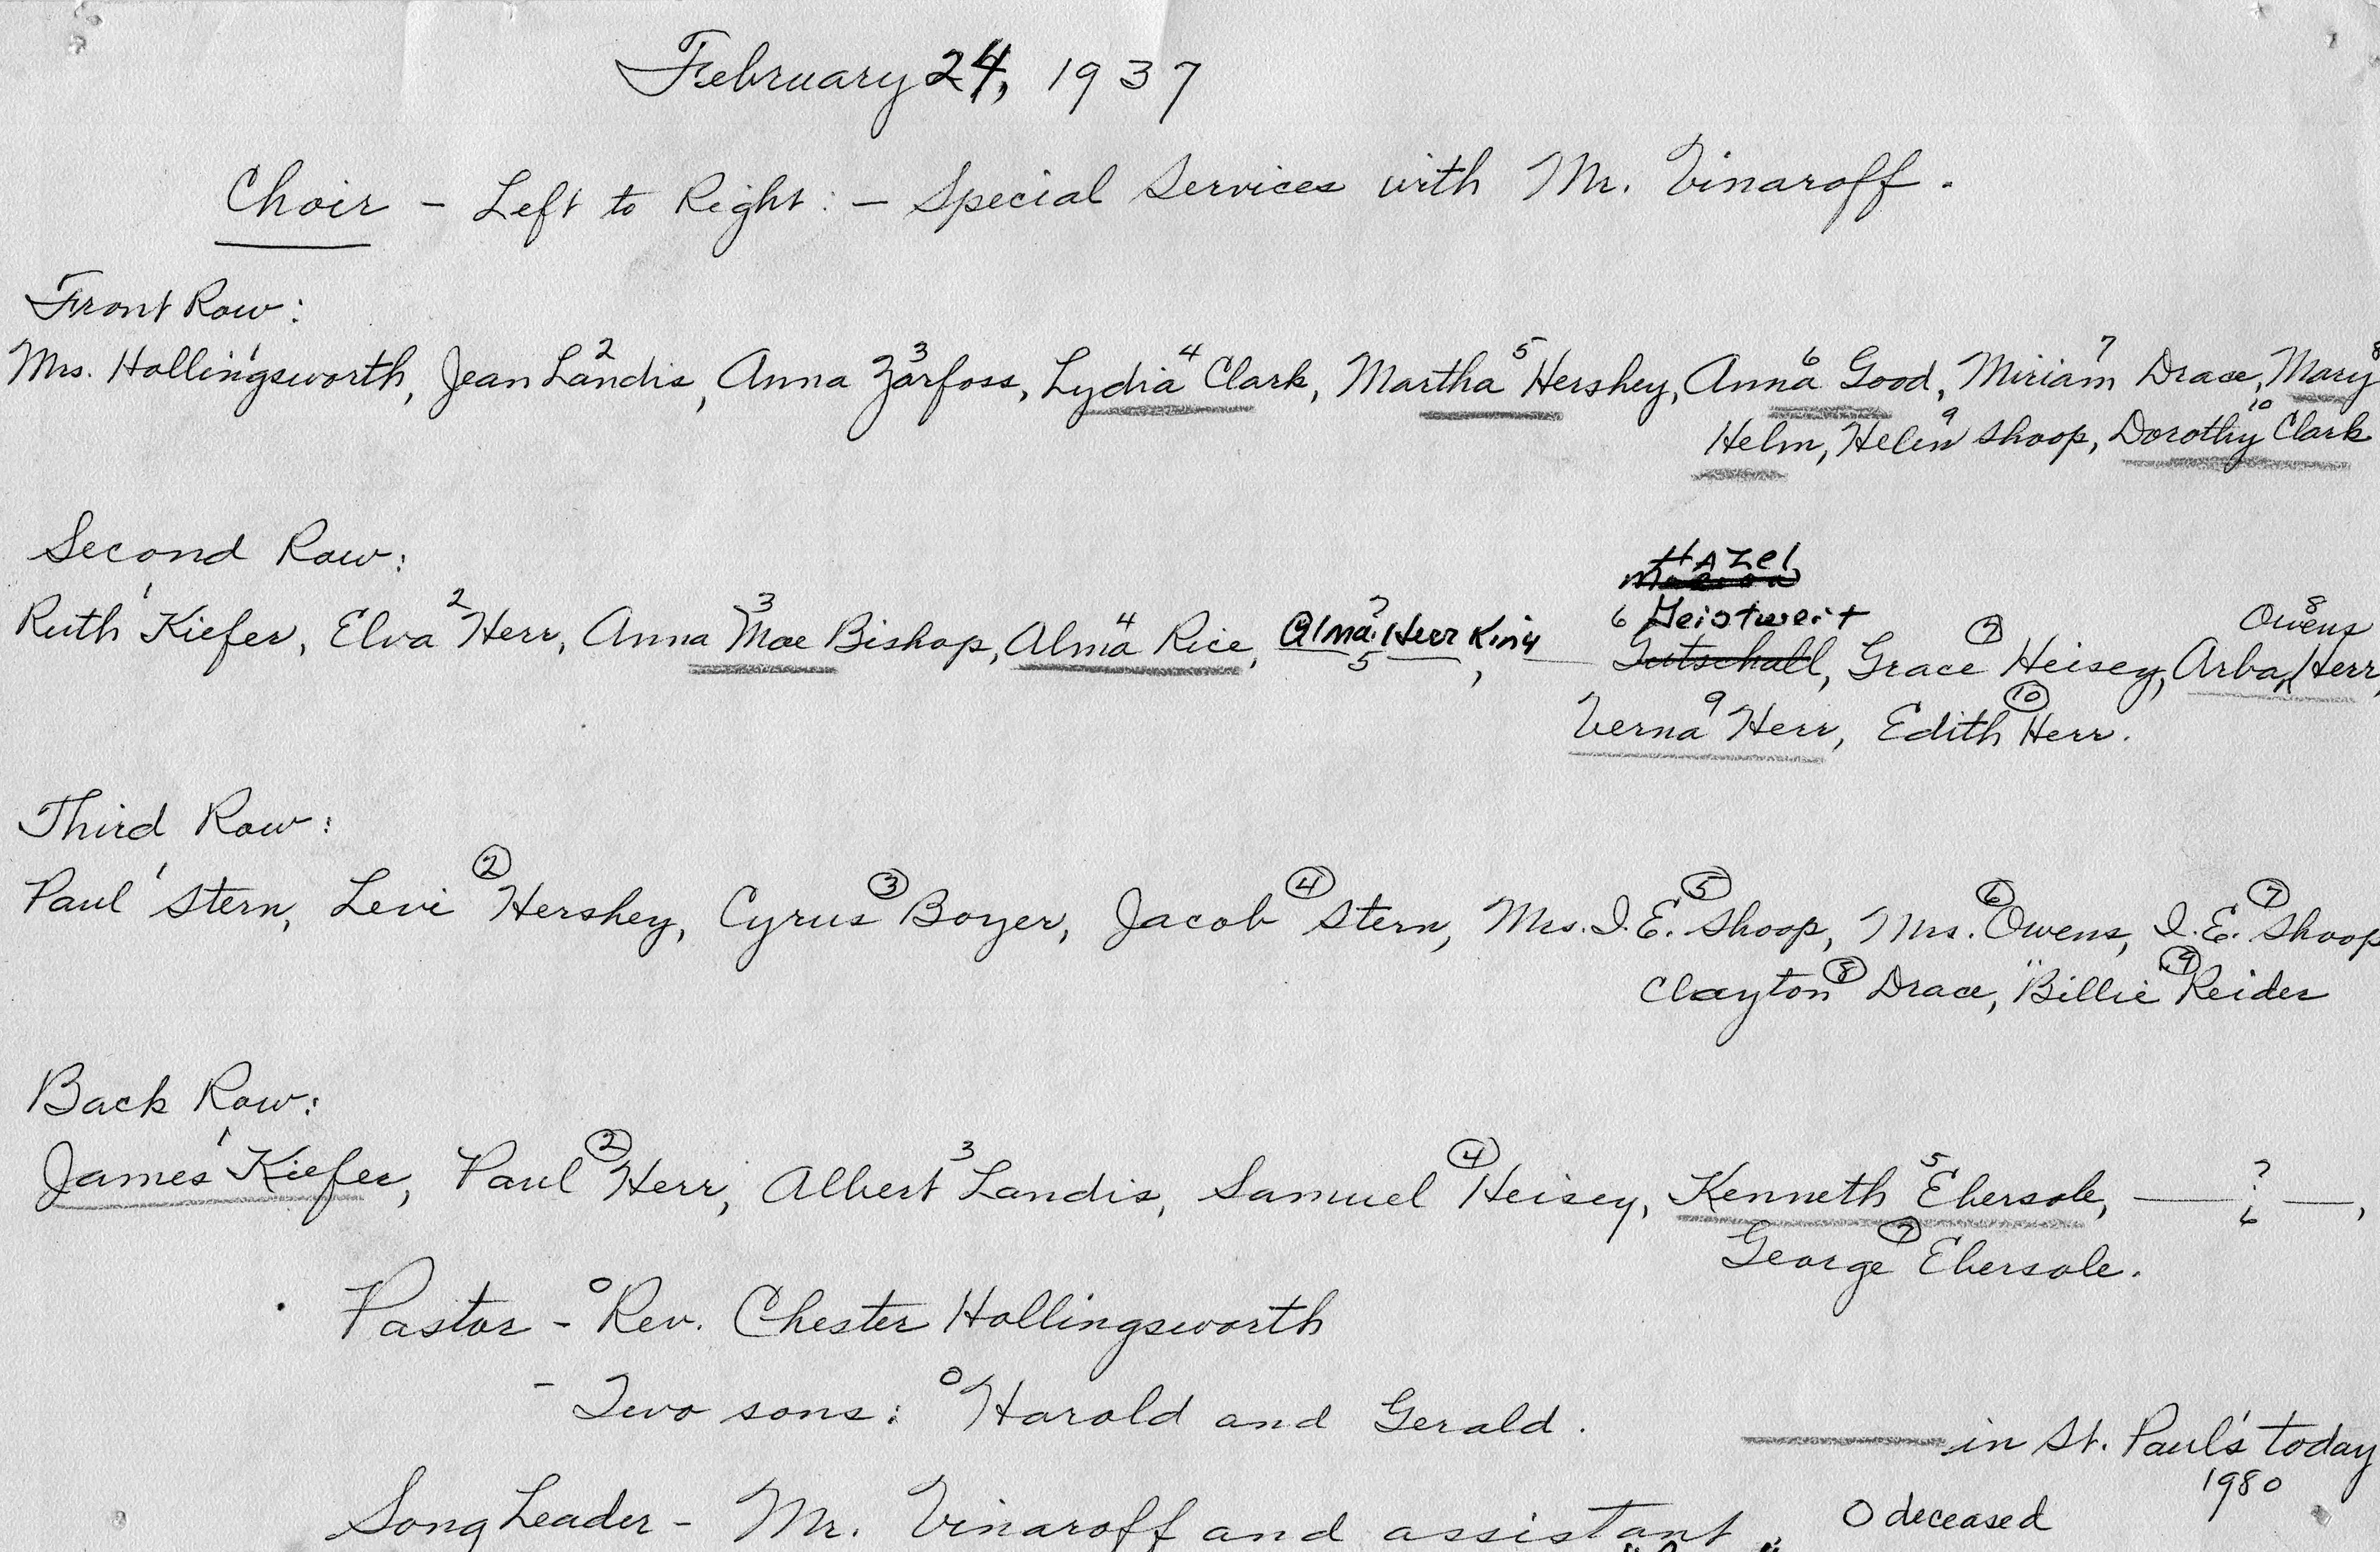 February 24, 1937
Choir - Left to Right: - Special Services with Mr. Vinaroff.
Front Row:
Mrs. Hollingsworth, Jean Landis, Anna Zarfoss, Lydia Clark, Martha Hershey, Anna Good, Miriam Drace, Mary
1 2 3 4 5 6 7 8
Helm, Helen Shoop, Dorothy Clark
9 10
Second Row:
HAZel
6 Geistweit
Owens
Ruth Kiefer, Elva Herr, Anna Mae Bishop, Alma Rice, Alma Herr King, Gutschall, Grace Heisey, Arba Herr,
1 2 3 4 ? 5 7 8
Verna Herr, Edith Herr.
9 10
Third Row:
Paul Stern, Levi Hershey, Cyrus Boyer, Jacob Stern, Mrs. I.E. Shoop, Mrs. Owens, I.E. Shoop
1 2 3 4 5 6 7
Clayton Drace, "Billie" Reider
8 9
Back Row:
James Kiefer, Paul Herr, Albert Landis, Samuel Heisey, Kenneth Ebersole, — ? —,
1 2 3 4 5 6
George Ebersole.
7
Pastor - o Rev. Chester Hollingsworth
- Two sons: o Harold and Gerald.
in St. Paul's today
1980
Song Leader - Mr. Vinaroff and assistant
O deceased